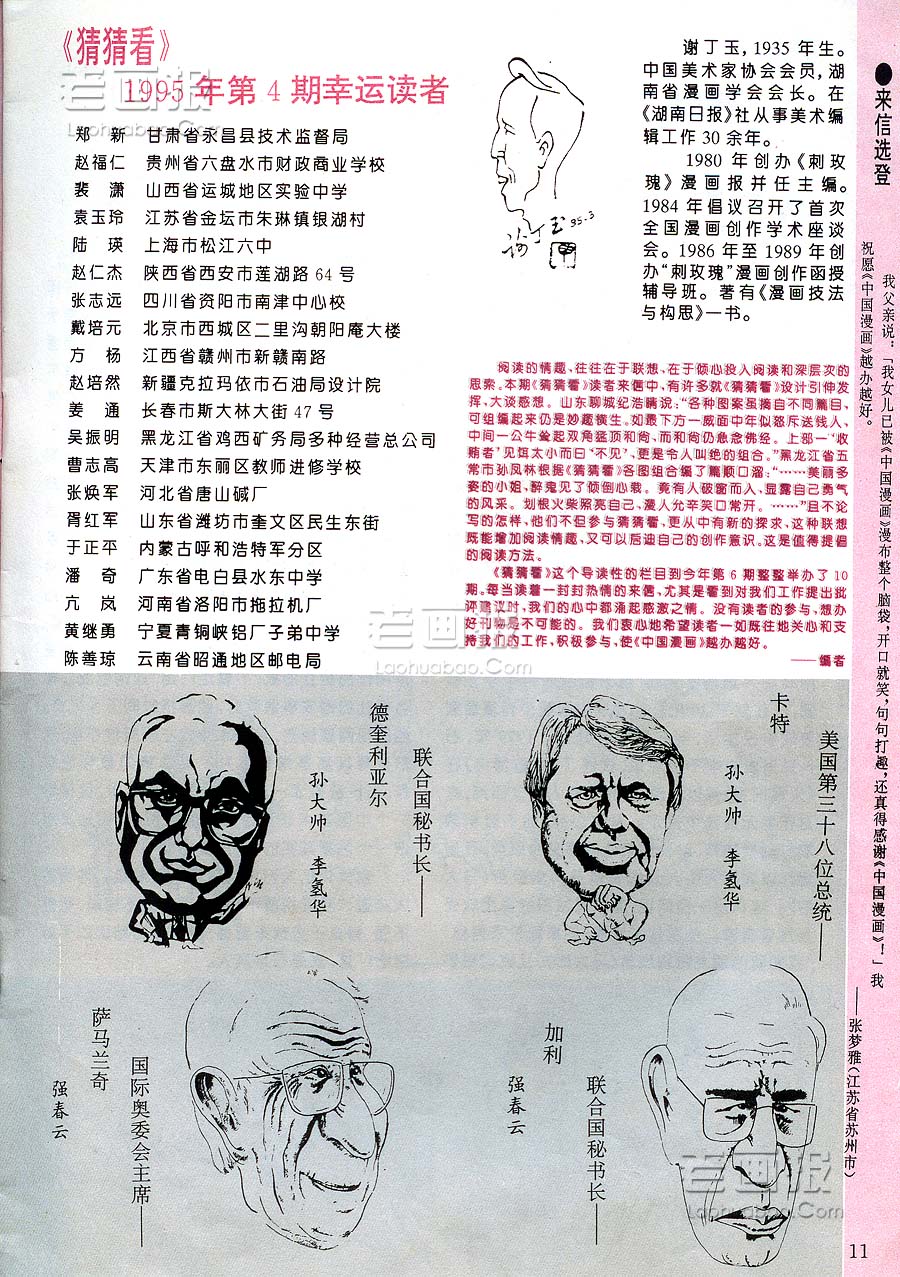 《猜猜看》
1995年第4期幸运读者
郑 新 甘肃省永昌县技术监督局
赵福仁 贵州省六盘水市财政商业学校
裴 潇 山西省运城地区实验中学
袁玉玲 江苏省金坛市朱琳镇银湖村
陆 瑛 上海市松江六中
赵仁杰 陕西省西安市莲湖路64号
张志远 四川省资阳市南津中心校
戴培元 北京市西城区二里沟朝阳庵大楼
方 杨 江西省赣州市新赣南路
赵培然 新疆克拉玛依市石油局设计院
姜 通 长春市斯大林大街47号
吴振明 黑龙江省鸡西矿务局多种经营总公司
曹志高 天津市东丽区教师进修学校
张焕军 河北省唐山碱厂
胥红军 山东省潍坊市奎文区民生东街
于正平 内蒙古呼和浩特军分区
潘 奇 广东省电白县水东中学
亢 岚 河南省洛阳市拖拉机厂
黄继勇 宁夏青铜峡铝厂子弟中学
陈善琼 云南省昭通地区邮电局
95-3
谢丁玉,1935年生。
中国美术家协会会员,湖
南省漫画学会会长。在
《湖南日报》社从事美术编
辑工作30余年。
1980年创办《刺玫
瑰》漫画报并任主编。
1984年倡议召开了首次
全国漫画创作学术座谈
会。1986年至1989年创
办“刺玫瑰”漫画创作函授
辅导班。著有《漫画技法
与构思》一书。
阅读的情趣、往往在于联想、在于倾心投入阅读和深层次的
思索。本期《猜猜看》读者来信中、有许多就《猜猜看》设计引伸发
挥、大谈感想。山东聊城纪浩晴说:“各种图案虽摘自不同篇目、
可组编起来仍是妙趣横生。如最下方一威面中年似怒斥送钱人、
中间一公牛耸起双角猛顶和尚、而和尚仍悬念佛经。上部一‘收
贿者’见饵太小而曰‘不见’、更是令人叫绝的组合。”黑龙江省五
常市孙凤林根据《猜猜看》各图组合编了篇顺口溜:“……美丽多
姿的小姐、醉鬼见了倾倒心栽。竟有人破窗而入、显露自己勇气
的风采。划根火柴照亮自己、漫人允辛笑口常开。……”且不论
写的怎样、他们不但参与猜猜看、更从中有新的探求、这种联想
既能增加阅读情趣、又可以启迪自己的创作意识。这是值得提倡
的阅读方法。
《猜猜看》这个导读性的栏目到今年第6期整整举办了10
期。每当读着一封封热情的来信、尤其是看到对我们工作提出批
评建议时、我们的心中都涌起感激之情。没有读者的参与、想办
好刊物是不可能的。我们衷心地希望读者一如既往地关心和支
持我们的工作、积极参与、使《中国漫画》越办越好。
——编者
●来信选登
我父亲说:「我女儿已被《中国漫画》漫布整个脑袋,开口就笑,句句打趣,还真得感谢《中国漫画》!」我
祝愿《中国漫画》越办越好。
——张梦雅(江苏省苏州市)
美国第三十八位总统——
卡特
孙大帅 李氢华
联合国秘书长——
德奎利亚尔
孙大帅 李氢华
联合国秘书长——
加利
强春云
国际奥委会主席——
萨马兰奇
强春云
11
老画报
Laohuabao.Com
老画报
Laohuabao.Com
老画报
Laohuabao.Com